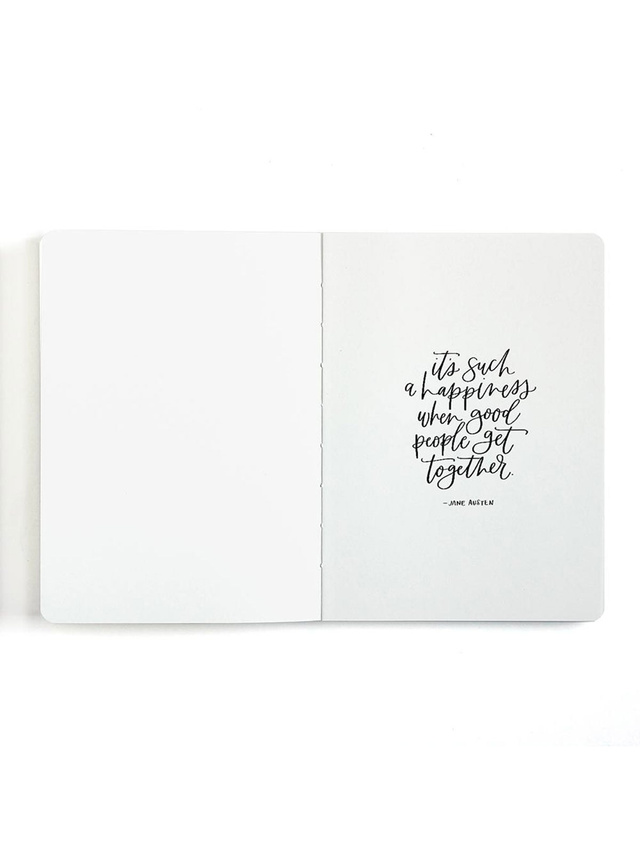 it's such
a happiness
when good
people get
together.
-JANE AUSTEN